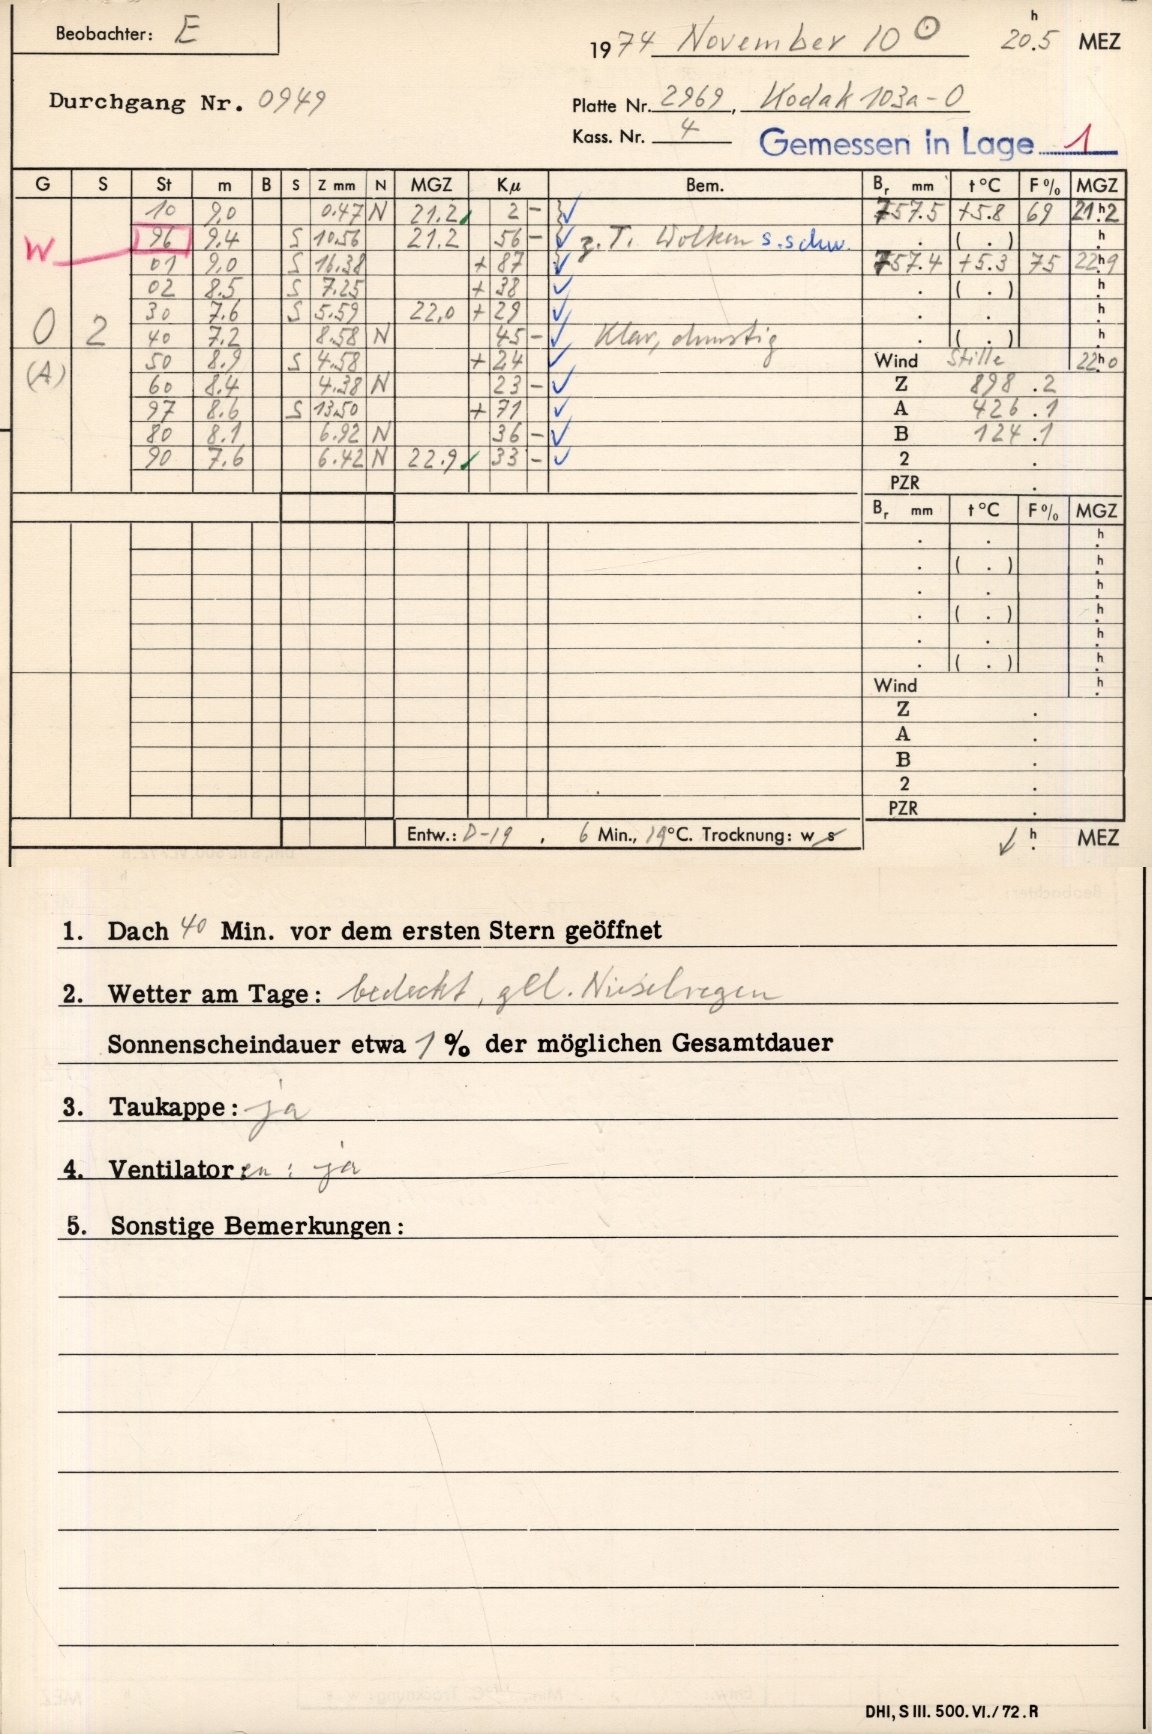 Beobachter: E
1974 November 10 ⊙ 20.5 h MEZ
Durchgang Nr. 0949
Platte Nr. 2969, Kodak 103a-O
Kass. Nr. 4
Gemessen in Lage 1
G S St m B S Z mm N MGZ Kμ Bem. Br mm t°C F% MGZ
10 9.0 0.47 N 21.2 2 - 757.5 +5.8 69 21h2
W 96 9.4 S 10.56 21.2 56 - z.T. Wolken s.schw. . ( . ) h
01 9.0 S 16.38 + 87 757.4 +5.3 75 22h9
02 8.5 S 7.25 + 38 . ( . ) h
0 2 30 7.6 S 5.59 22,0 + 29 . . h
40 7.2 8.58 N 45 - Klar, dunstig . ( . ) h
(A) 50 8.9 S 4.58 + 24 Wind Stille 22h0
60 8.4 4.38 N 23 - Z 898.2
97 8.6 S 13.50 + 71 A 426.1
80 8.1 6.92 N 36 - B 124.1
90 7.6 6.42 N 22.9 33 - 2 .
PZR .
Br mm t°C F% MGZ
. . h
. ( . ) h
. . h
. ( . ) h
. . h
. ( . ) h
Wind h
Z .
A .
B .
2 .
PZR .
Entw.: D-19 , 6 Min., 19°C. Trocknung: w s h MEZ
1. Dach 40 Min. vor dem ersten Stern geöffnet
2. Wetter am Tage: bedeckt, gel. Nieselregen
Sonnenscheindauer etwa 1 % der möglichen Gesamtdauer
3. Taukappe: ja
4. Ventilator: en: ja
5. Sonstige Bemerkungen:
DHI, S III. 500. VI./72. R